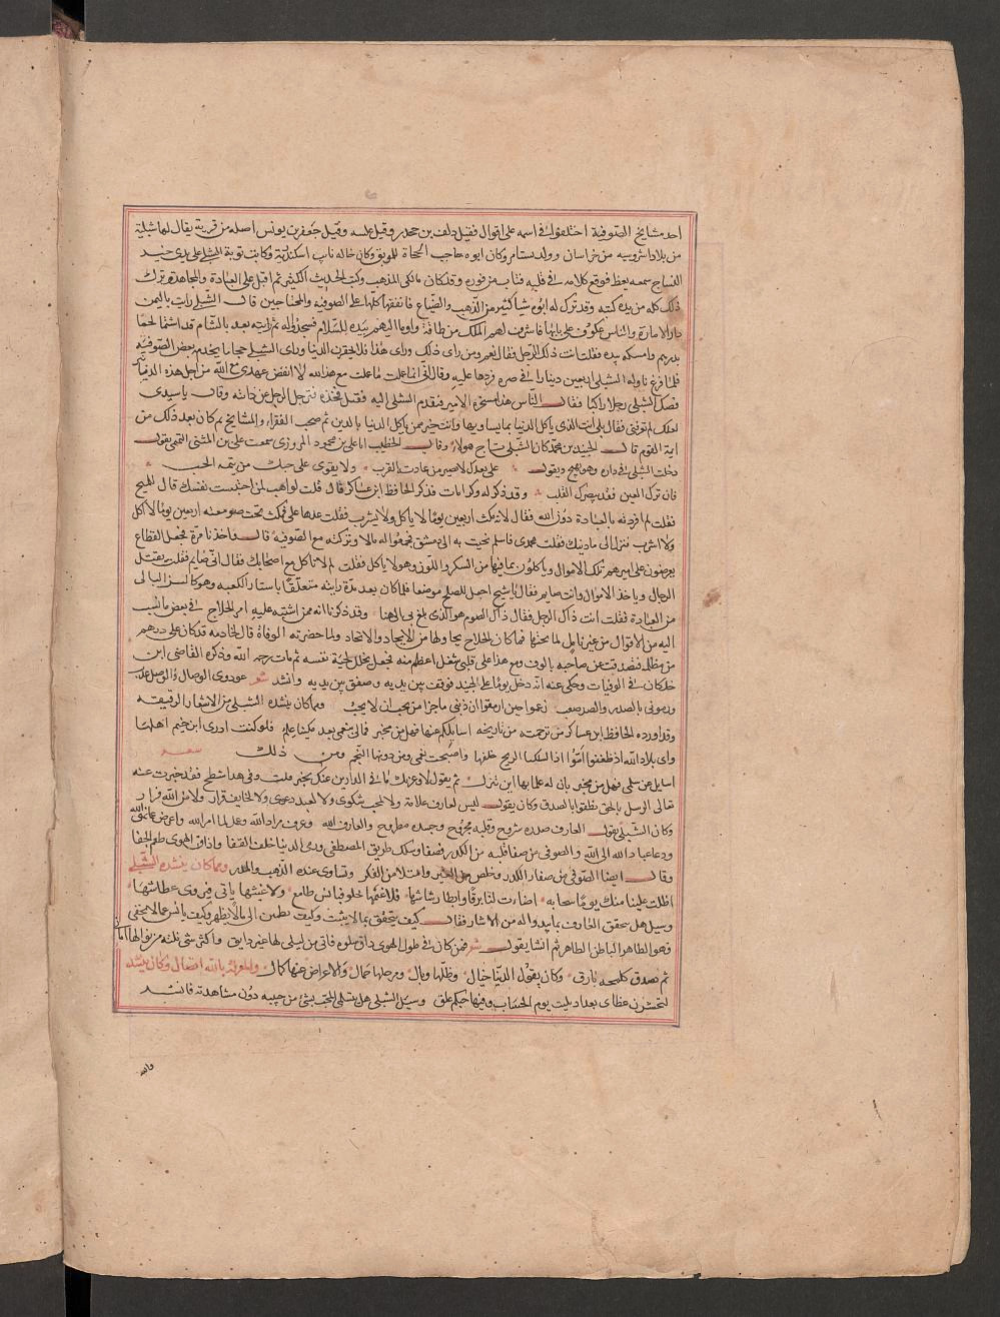 احد مشايخ الصوفية اختلفوا في اسمه على اقوال فقيل دلف بن جحدر وقيل جعفر بن يونس اصله من قرية يقال لها شبلية
من بلاد اشروسنه من خراسان وولد بسامرا وكان ابوه حاجب الحجاب للموفق وكان خاله نايب اسكندرية وكانت توبة الشبلي على يدي خير
النساج سمعه يعظ فوقع كلامه في قلبه فتاب من فوره وقد كان مالكي المذهب وكتب الحديث الكثير ثم اقبل على العبادة والمجاهدة وترك
ذلك كله من يده كتبه وقد ترك له ابوه شيا كثيرا من الذهب والضياع فانفقها كلها على الصوفيه والمحتاجين قال الشبلي رايت باليمن
دار الامارة والناس عكوف على بابها فاشرف لهم الملك من طاقة واوما اليهم بيده للسلام فسجدوا له ثم رايته بعد بالشام قد اشترا لحما
بدرهم وامسكه بيده فقلت انت ذلك الرجل فقال نعم ومن راى ذلك وراى هذا فلا يغترن الدنيا وراى الشبلي حجاما يخدم بعض الصوفية
فلما فرغ ناوله الشبلي اربعين دينارا في صره فردها عليه وقال اني انما عملت ما عملت مع هذا لله لا انقض عهدي مع الله من اجل هذه الدنيا
الشبلي رجلا راكبا فقال الناس هذا مسخرة الامير فتقدم الشبلي اليه فقبل فخذه فترجل الرجل عن دابته وقال ياسيدي
لعلك لم تعرفني فقال بلى انت الذي ياكل الدنيا بما يساويها وانت خير ممن ياكل الدنيا بالدين ثم صحب الفقراء والمشايخ ثم كان بعد ذلك من
القوم قال الجنيد بن محمد كان الشبلي تاج هولاء وقال الخطيب انا علي بن محمود المروزي سمعت علي بن المثنى التميمي يقول
دخلت الشبلي في داره وهو يهيج ويقول على بعدك لا يصبر من عادته القرب ولا يقوى على حبك من تيمه الحب
فان لم ترك العين فقد يبصرك القلب وقد ذكر له كرامات فذكر الحافظ ابن عساكر قال قلت لواهب لمن احتبست نفسك قال للمسيح
فقلت لم افردته بالعبادة دون الله فقال لانه مكث اربعين يوما لا ياكل ولا يشرب فقلت عدها علي فمكثت تحت صومعته اربعين يوما لا اكل
ولا اشرب فنزل الي ما دينك فقلت محمدي فاسلم نحيت به الى دمشق فجمعوا له مالا وتركته مع الصوفيه قال واخذنا مرة فجعل القطاع
يعرضون على اميرهم تلك الاموال وياكلون بما فيها من السكر واللوز وهو لا ياكل فقلت لم لا تاكل مع اصحابك فقال اني صايم فقلت يقتل
الرجال وياخذ الاموال وانت صايم فقال ياشيخ اجعل للصلح موضعا فلما كان بعد مدة رايته متعلقا باستار الكعبه وهو كالشن البالي
من العبادة فقلت انت ذاك الرجل فقال ذاك الصوم هو الذي بلغ بي الى هنا وقد ذكرنا انه ممن اشتبه عليه امر الحلاج في بعض ما نسب
اليه من الاقوال من غير تاويل لما تحتها فما كان الحلاج يحاولها من الالحاد والاتحاد ولما حضرته الوفاة قال لخادمه قد كان علي درهم
من مظلمه فتصدقت عن صاحبه بالوف ومع هذا ما على قلبي شغل اعظم منه فجعل يخلل لحيته نفسه ثم مات رحمه الله وذكره القاضي ابن
خلكان في الوفيات وحكى عنه انه دخل يوما على الجنيد فوقف بين يديه وصفق بين يديه وانشد شعر عودوني الوصال والوصل عذب
ورموني بالصد والصد صعب زعموا حين ازمعوا ان ذنبي ما جزا من يحب ان لا يحب ومما كان ينشده الشبلي من الاشعار الرقيقه
وقد اورده الحافظ ابن عساكر في ترجمته من تاريخه اسايلكم عنها فهل من مخبر فمالي بنعمى بعد مكثنا علم فلو كنت ادري اين خيم اهلها
واي بلاد الله اذ ظعنوا اموا اذا لسلكنا الريح خلفها واصبحت نعمى ومن دونها النجم ومن ذلك
اسايل عن سلمى فهل من مخبر بان له علما بها اين تنزل ثم يقول لا وعزتك ما في الدارين عنك يخبر
تعالى الرسل بالحق نطقوا بالصدق وكان يقول ليس لعارف علامة ولا لمحب شكوى ولا لعبد دعوى ولا لخايف قرار ولا من الله فرار
وكان الشبلي يقول العارف صدره مشروح وقلبه مجروح وجسده مطروح والعارف الله وعرف مراد الله وعمل بما امر الله واعرض عما نهى الله
ودعا عباد الله الى الله والصوفي من صفا قلبه من الكدر فصفا وسلك طريق المصطفى ورمى الدنيا خلف القفا واذاق الهوى طعم الجفا
وقال ايضا الصوفي من صفا من الكدر وخلص من الغير وامتلا من الفكر وتساوى عنده الذهب والمدر ومما كان ينشده الشبلي
اظلت علينا منك يوما سحابه اضاءت لنا برقا وابطا رشاشها فلا غيمها يجلو فيايس طامع ولا غيثها ياتي فيروى عطاشها
وسيل هل يتحقق العارف بما يبدوا له من الاثار فقال كيف يتحقق بما لا يثبت وكيف يطمين الى ما لا يظهر وكيف يانس بما لا يخفى
فهو الظاهر الباطن الظاهر ثم انشا يقول شعر فمن كان في طول الهوى ذاق سلوه فاني من ليلى لها غير ذايق واكثر شي نلته من نوالها اماني
لم تصدق كلمحة بارق وكان يقول الدنيا خيال وظلها وبال وعرضها محال والاعراض عنها كمال والمعرفة بالله اتصال وكان ينشد
لتحشرن عظامي بعد اذ بليت يوم الحساب وفيها حبكم علق وسيل الشبلي هل يتسلى المحب بشي من حبيبه دون مشاهدته فانشد
والله